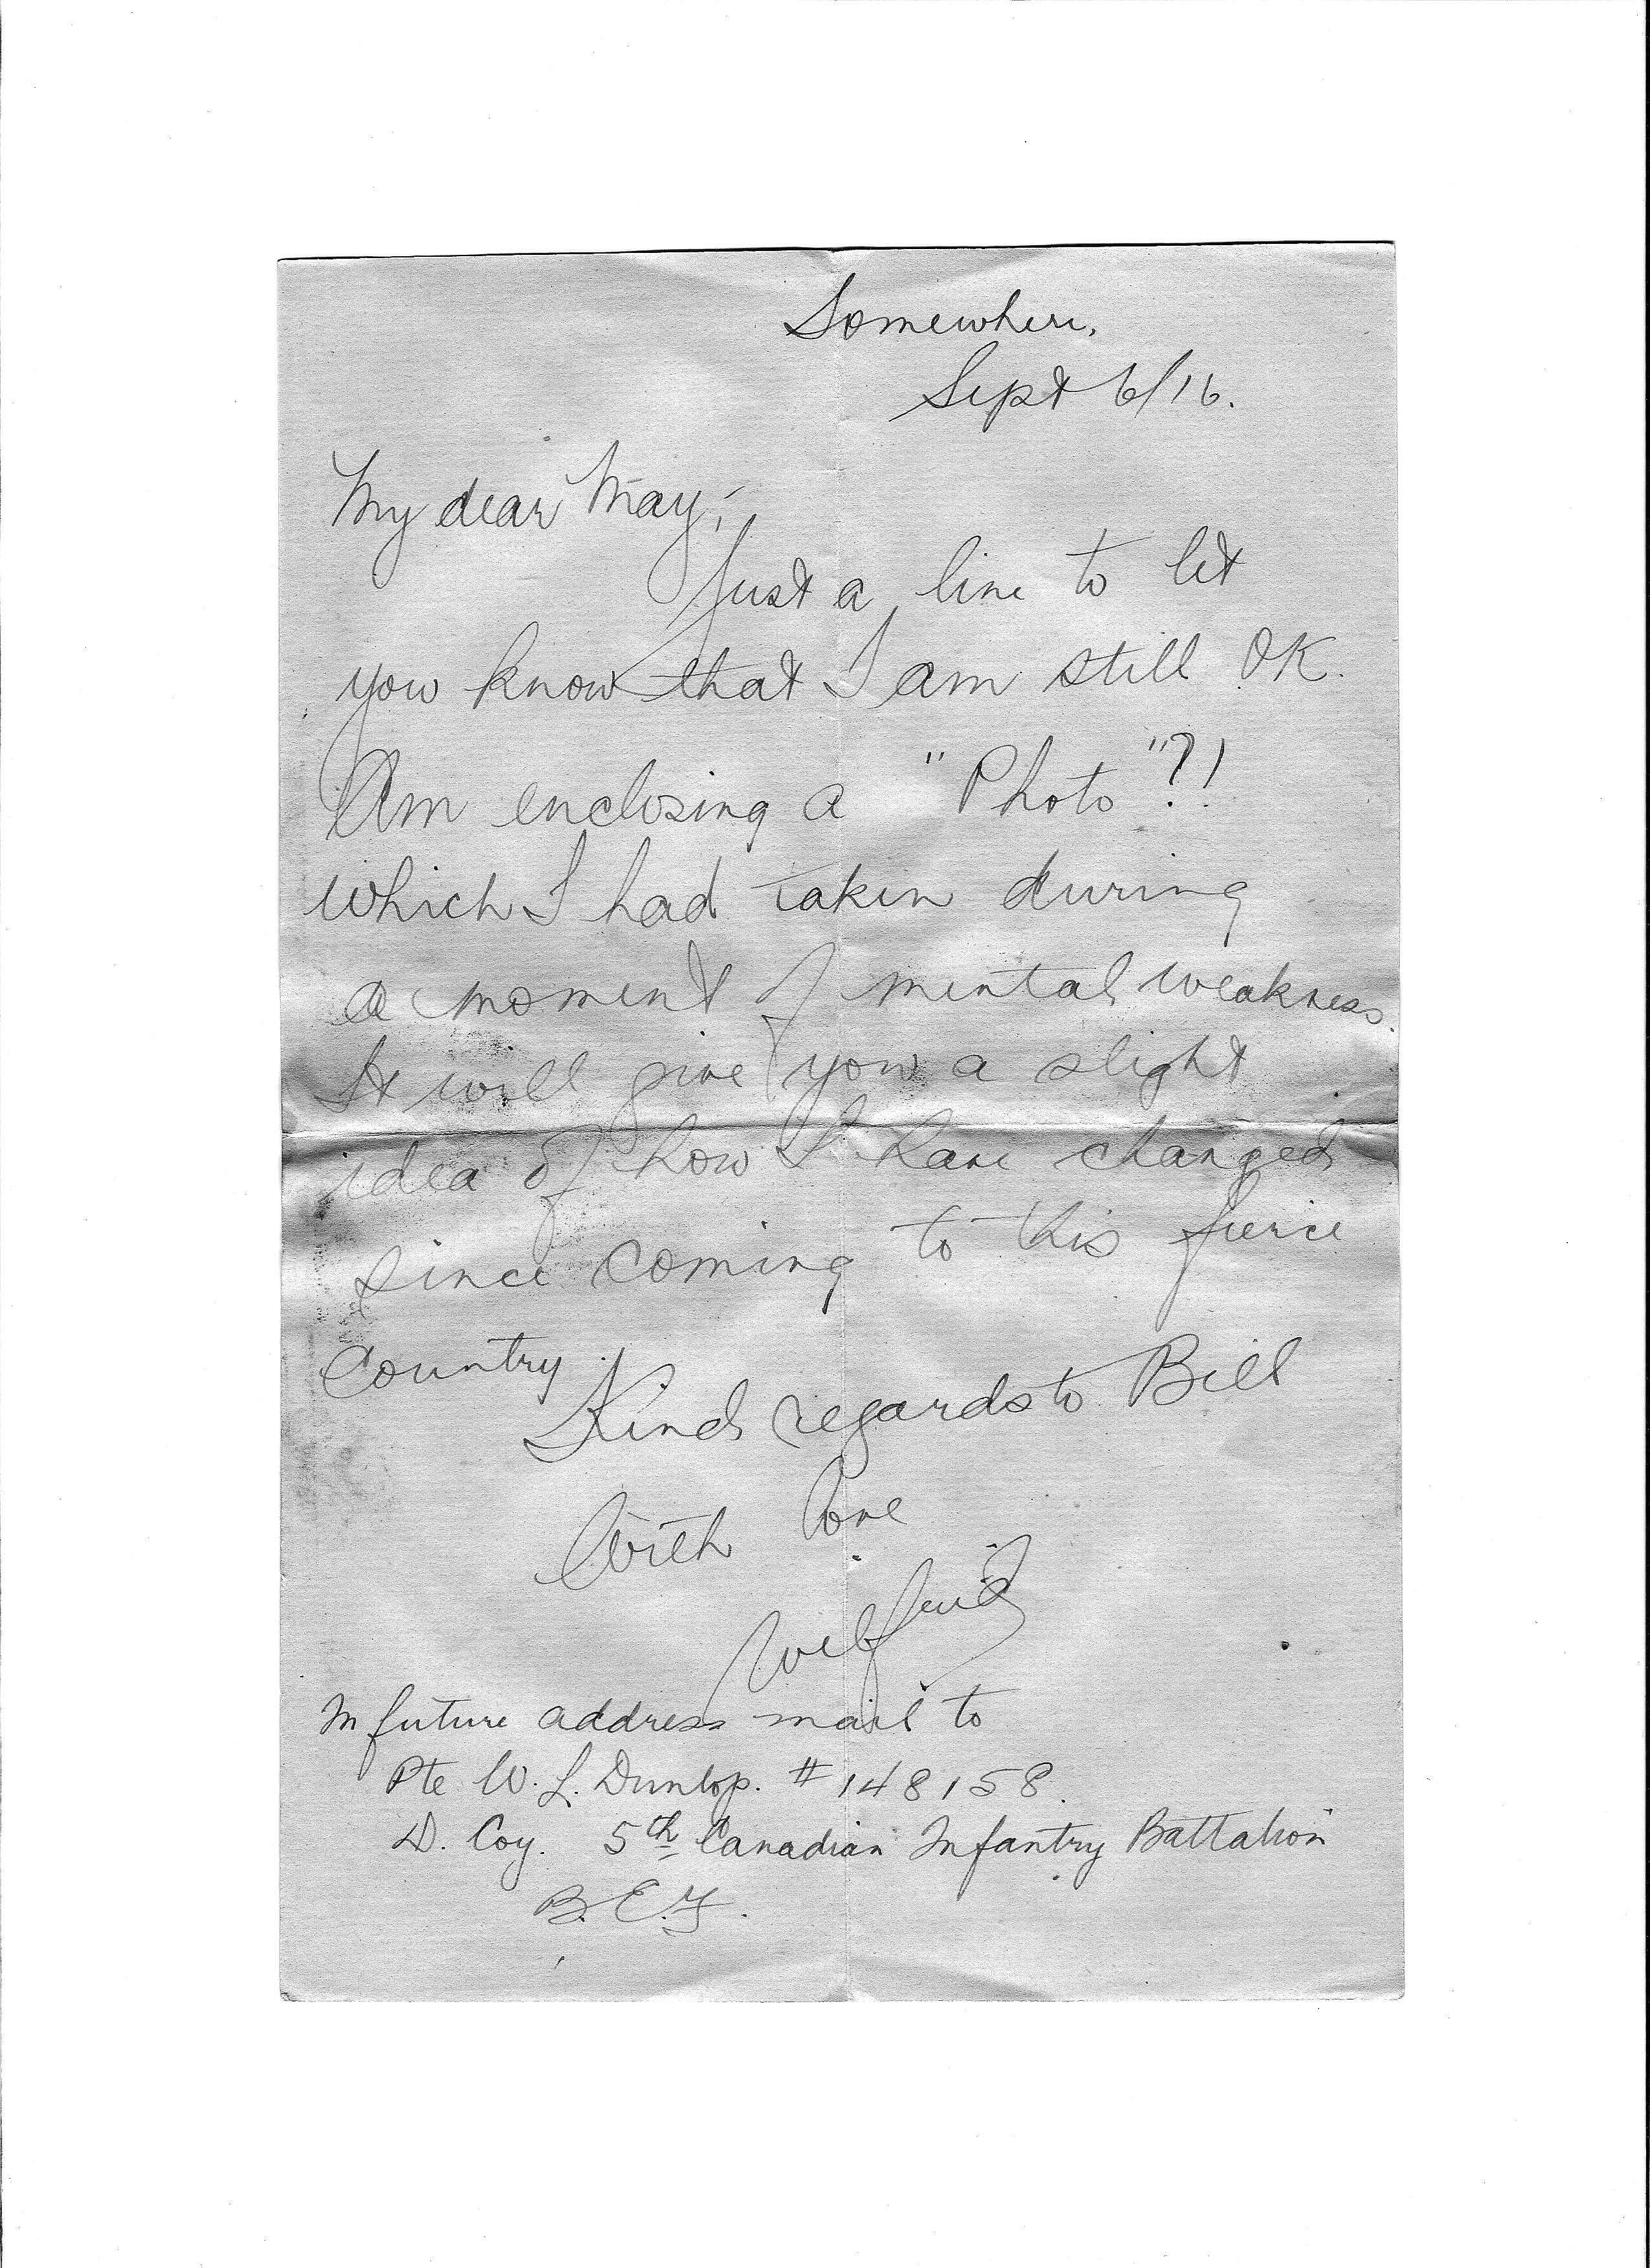 Somewhere,
Sept 6/16.
My dear May;-
Just a line to let
you know that I am still OK.
Am enclosing a "Photo"?!
which I had taken during
a moment of mental weakness.
It will give you a slight
idea of how I have changed
since coming to this fierce
country.
Kind regards to Bill
With love
Wilfrid
In future address mail to
Pte W. L. Dunlop. # 148158.
D. Coy. 5th Canadian Infantry Battalion
B.E.F.